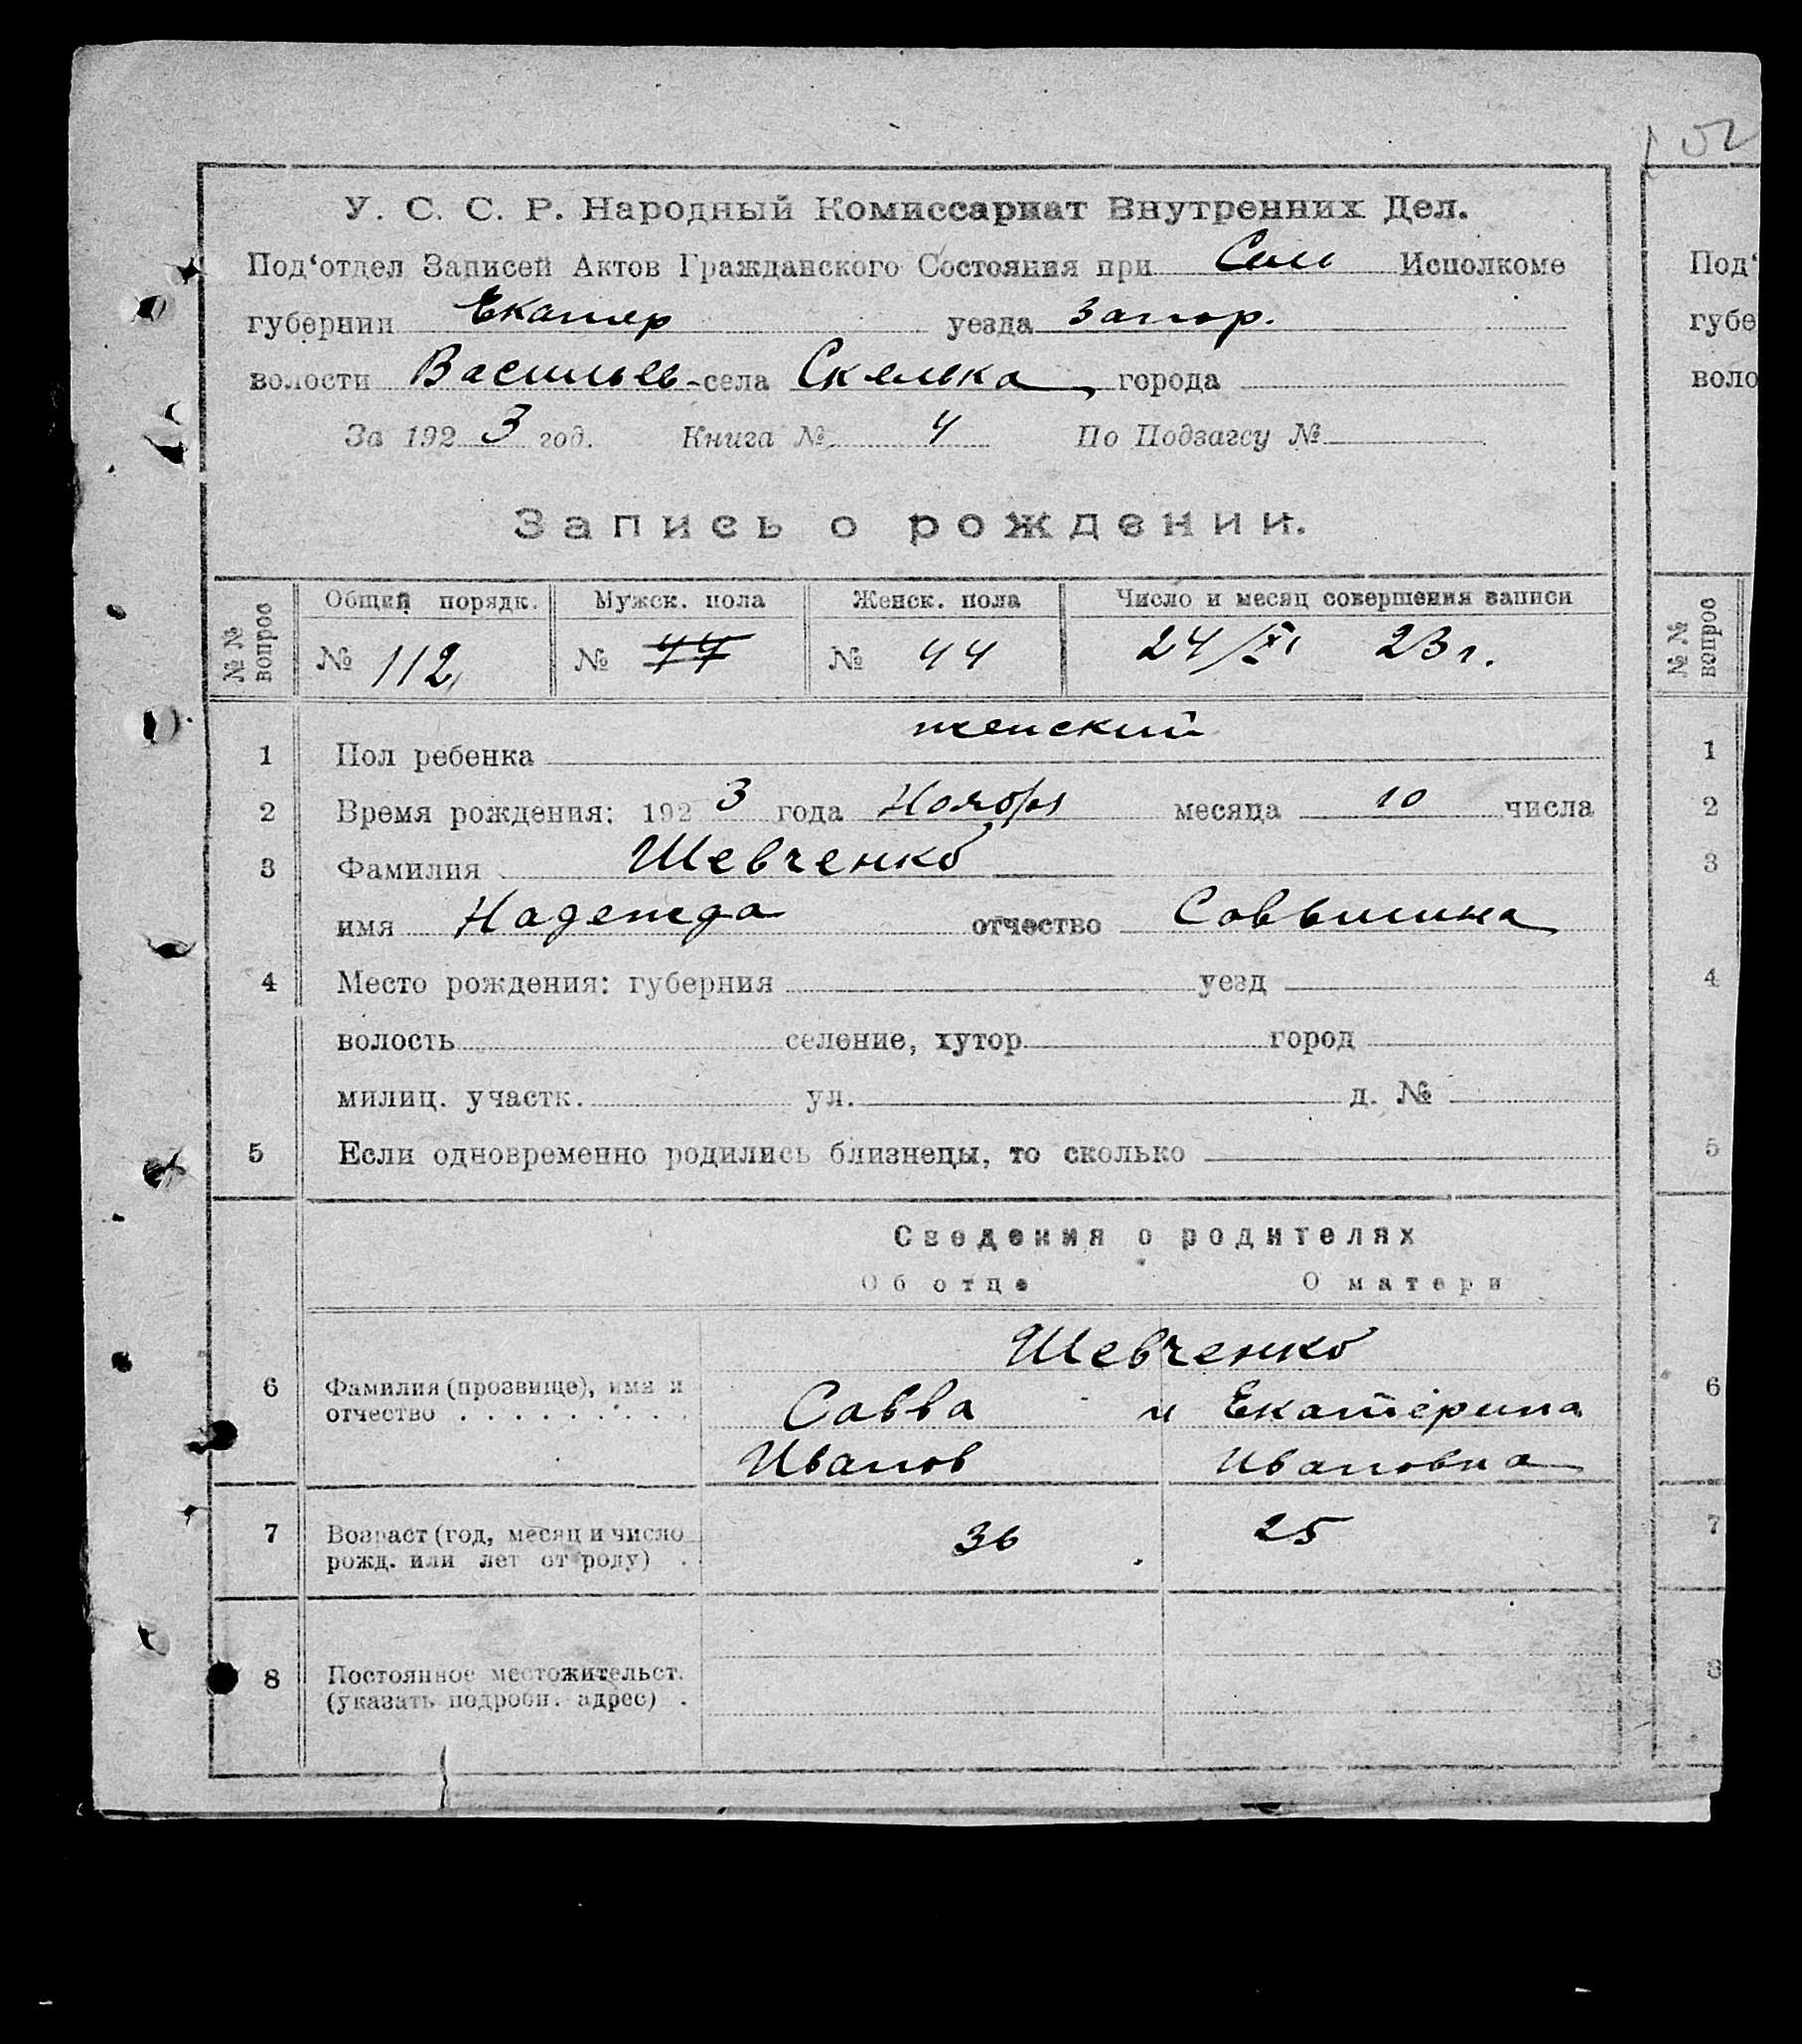 152
У. С. С. Р. Народный Комиссариат Внутренних Дел.
Под‘отдел Записей Актов Гражданского Состояния при Сель Исполкоме
губернии Екатер уезда Запор.
волости Васильев- села Скелька города
За 1923 год. Книга № 4 По Подзагсу №
Запись о рождении.
№ № вопрос
Общий порядк. Мужск. пола Женск. пола Число и месяц совершения записи
№ 112 № 44 № 44 24/XI 23 г.
1 Пол ребенка женский
2 Время рождения: 1923 года Ноября месяца 10 числа
3 Фамилия Шевченко
имя Надежда отчество
4 Место рождения: губерния уезд
волость селение, хутор город
милиц. участк. ул. д. №
5 Если одновременно родились близнецы, то сколько
Сведения о родителях
Об отце О матери
Шевченко
6 Фамилия (прозвище), имя и
отчество . . . . . . . . . Савва и Екатерина
Иванов Ивановна
7 Возраст (год, месяц и число
рожд. или лет от роду) . 36 25
8 Постоянное местожительст.
(указать подробн. адрес) .
Под‘
губе
воло
№ № вопрос
1
2
3
4
5
6
7
8